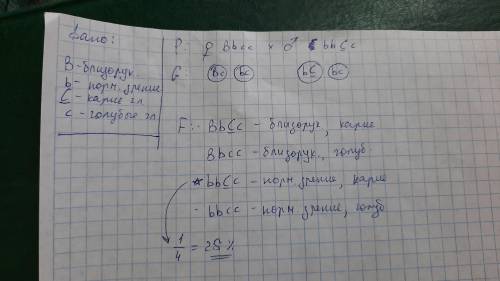 Дано:
B - близорук.
b - норм. зрение
C - карие гл.
c - голубые гл.
P: ♀ Bbcc × ♂ bbCc
G: Bc bc bC bc
F: BbCc - близорук, карие
Bbcc - близорук., голуб
* bbCc - норм. зрение, карие
- bbcc - норм. зрение, голуб
1/4 = 25 %